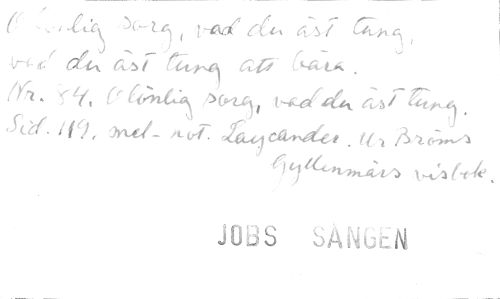 Olönlig sorg, vad du äst tung,
vad du äst tung att bära.
Nr. 84. Olönlig sorg, vad du äst tung.
Sid. 119. mel-not. Laycander. Ur Bröms
Gyllenmärs visbok.
JOBS SÅNGEN